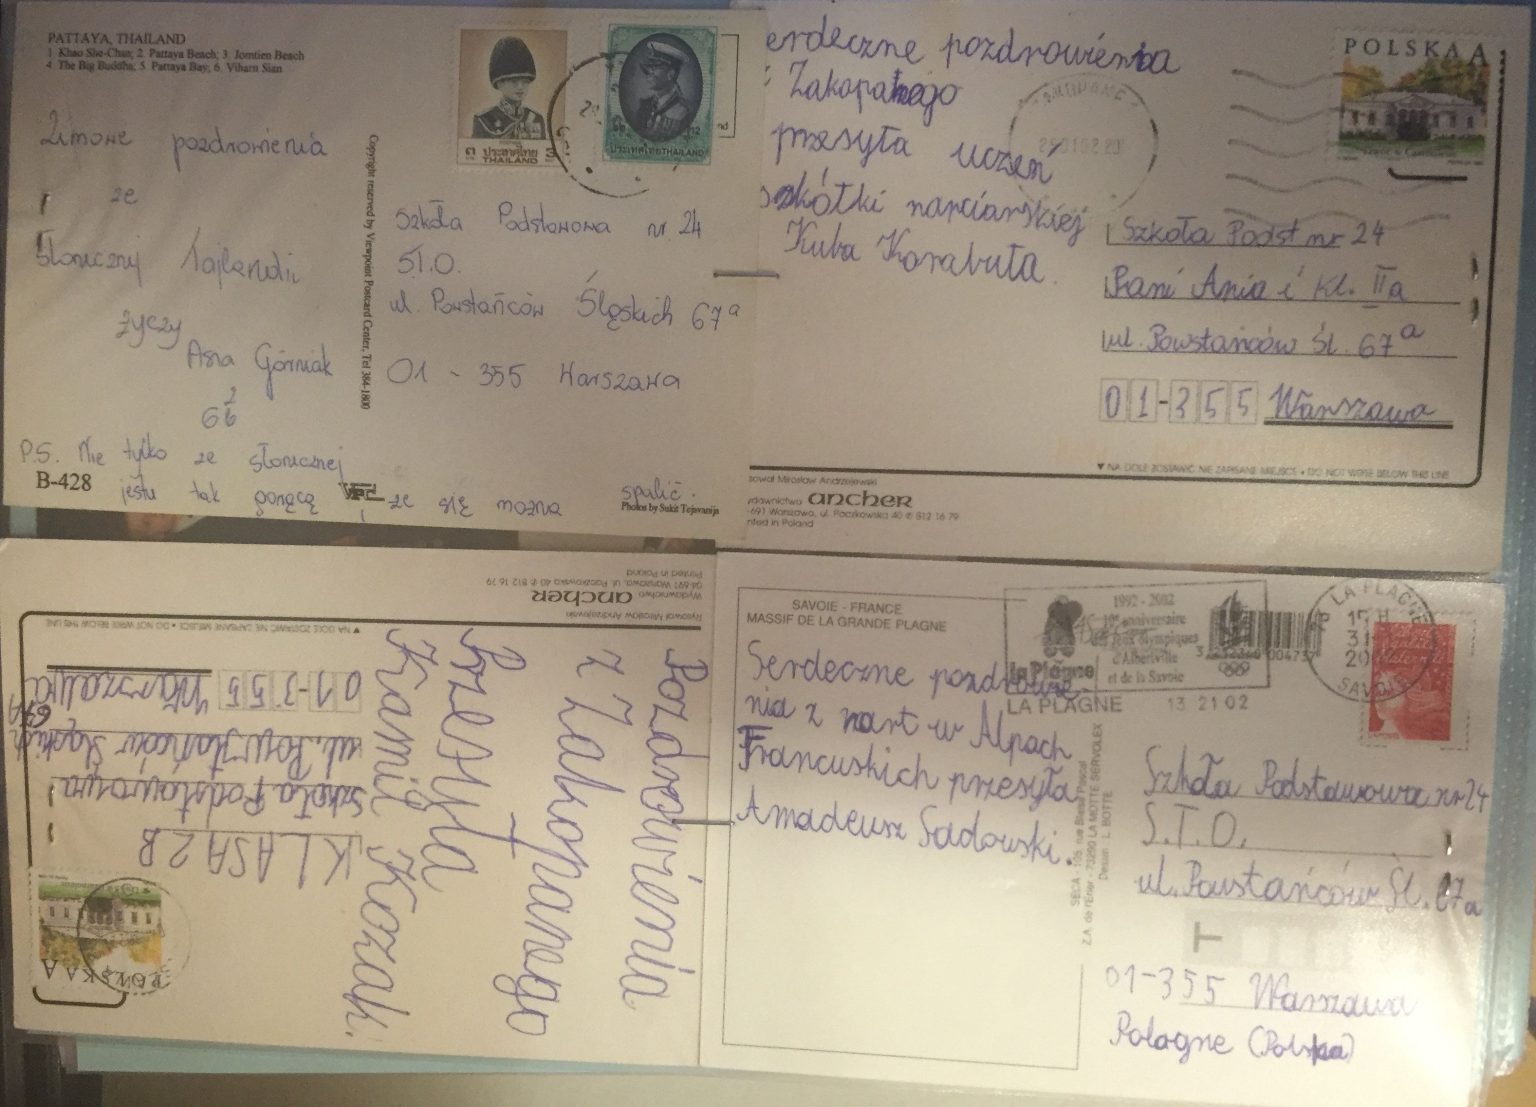 PATTAYA, THAILAND
1 Khao She-Chan; 2. Pattaya Beach; 3. Jomtien Beach
4. The Big Buddha; 5. Pattaya Bay; 6. Viharn Sian
Zimowe pozdrowienia
ze
Słonecznej Tajlandii
życzy
Asia Górniak
P.S. Nie tylko ze słonecznej
B-428
jestu tak gorąco że się można spalić.
Copyright reserved by Viewpoint Postcard Center, Tel 384-1800
Photos by Sukit Tejavanija
๓ ประเทศไทย 3
THAILAND
ประเทศไทย THAILAND
Szkoła Podstawowa nr 24
S.T.O.
ul. Powstańców Śląskich 67a
01-355 Warszawa
erdeczne pozdrowienia
Zakopanego
przesyła uczeń
szkółki narciarskiej
Kuba Korabuła.
POLSKA A
Szkoła Podst nr 24
Pani Ania i kl. IIa
ul. Powstańców Śl. 67a
01-355 Warszawa
▼ NA DOLE ZOSTAWIĆ NIE ZAPISANE MIEJSCE • DO NOT WRITE BELOW THIS LINE
sował Mirosław Andrzejewski
ydawnictwo ancher
-691 Warszawa, ul. Paczkowska 40 ✆ 812 16 79
nted in Poland
Pozdrowienia
z Zakopanego
Przesyła
Kamil Kozak.
KLASA 2B
Szkoła Podstawowa
ul. Powstańców Śląskich
67A
01-355 Warszawa
POLSKA A
▼ NA DOLE ZOSTAWIĆ NIE ZAPISANE MIEJSCE • DO NOT WRITE BELOW THIS LINE
Rysował Mirosław Andrzejewski
Wydawnictwo ancher
04-691 Warszawa, ul. Paczkowska 40 ✆ 812 16 79
Printed in Poland
SAVOIE - FRANCE
MASSIF DE LA GRANDE PLAGNE
Serdeczne pozdrowie-
nia z nart w Alpach
Francuskich przesyła
Amadeusz Sadowski.
1992 - 2002
10e anniversaire
Jeux olympiques
d'Albertville
et de la Savoie
la Plagne
LA PLAGNE 13 21 02
LA PLAGNE
SAVOIE
SECA - 105, rue Blaise Pascal
Z.A. de l'Erier - 73290 LA MOTTE SERVOLEX
Dessin : L. BOTTE
Szkoła Podstawowa nr 24
S.T.O.
ul. Powstańców Śl. 67a
T
01-355 Warszawa
Polagne (Polska)